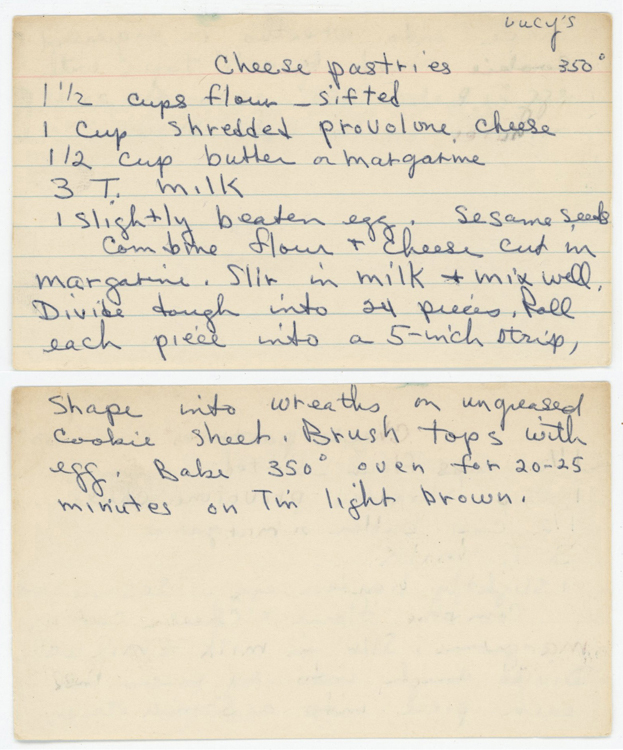 Lucy's
Cheese pastries 350°
1 1/2 cups flour - sifted
1 cup shredded provolone cheese
1/2 cup butter or margarine
3 T. milk
1 slightly beaten egg. Sesame seeds
Combine flour + cheese cut in
margarine. Stir in milk + mix well.
Divide dough into 24 pieces. Roll
each piece into a 5-inch strip,
Shape into wreaths on ungreased
cookie sheet. Brush tops with
egg. Bake 350° oven for 20-25
minutes or Til light brown.